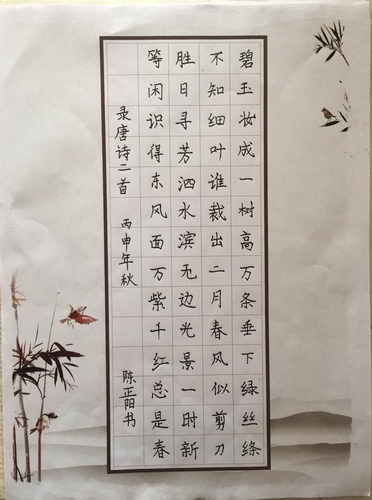 碧玉妆成一树高万条垂下绿丝绦
不知细叶谁裁出二月春风似剪刀
胜日寻芳泗水滨无边光景一时新
等闲识得东风面万紫千红总是春
录唐诗二首 丙申年秋 陈正阳书